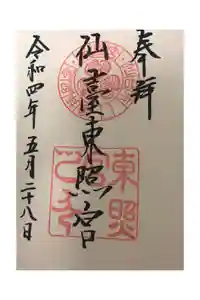 奉拝
仙臺東照宮
令和四年五月二十八日
東照